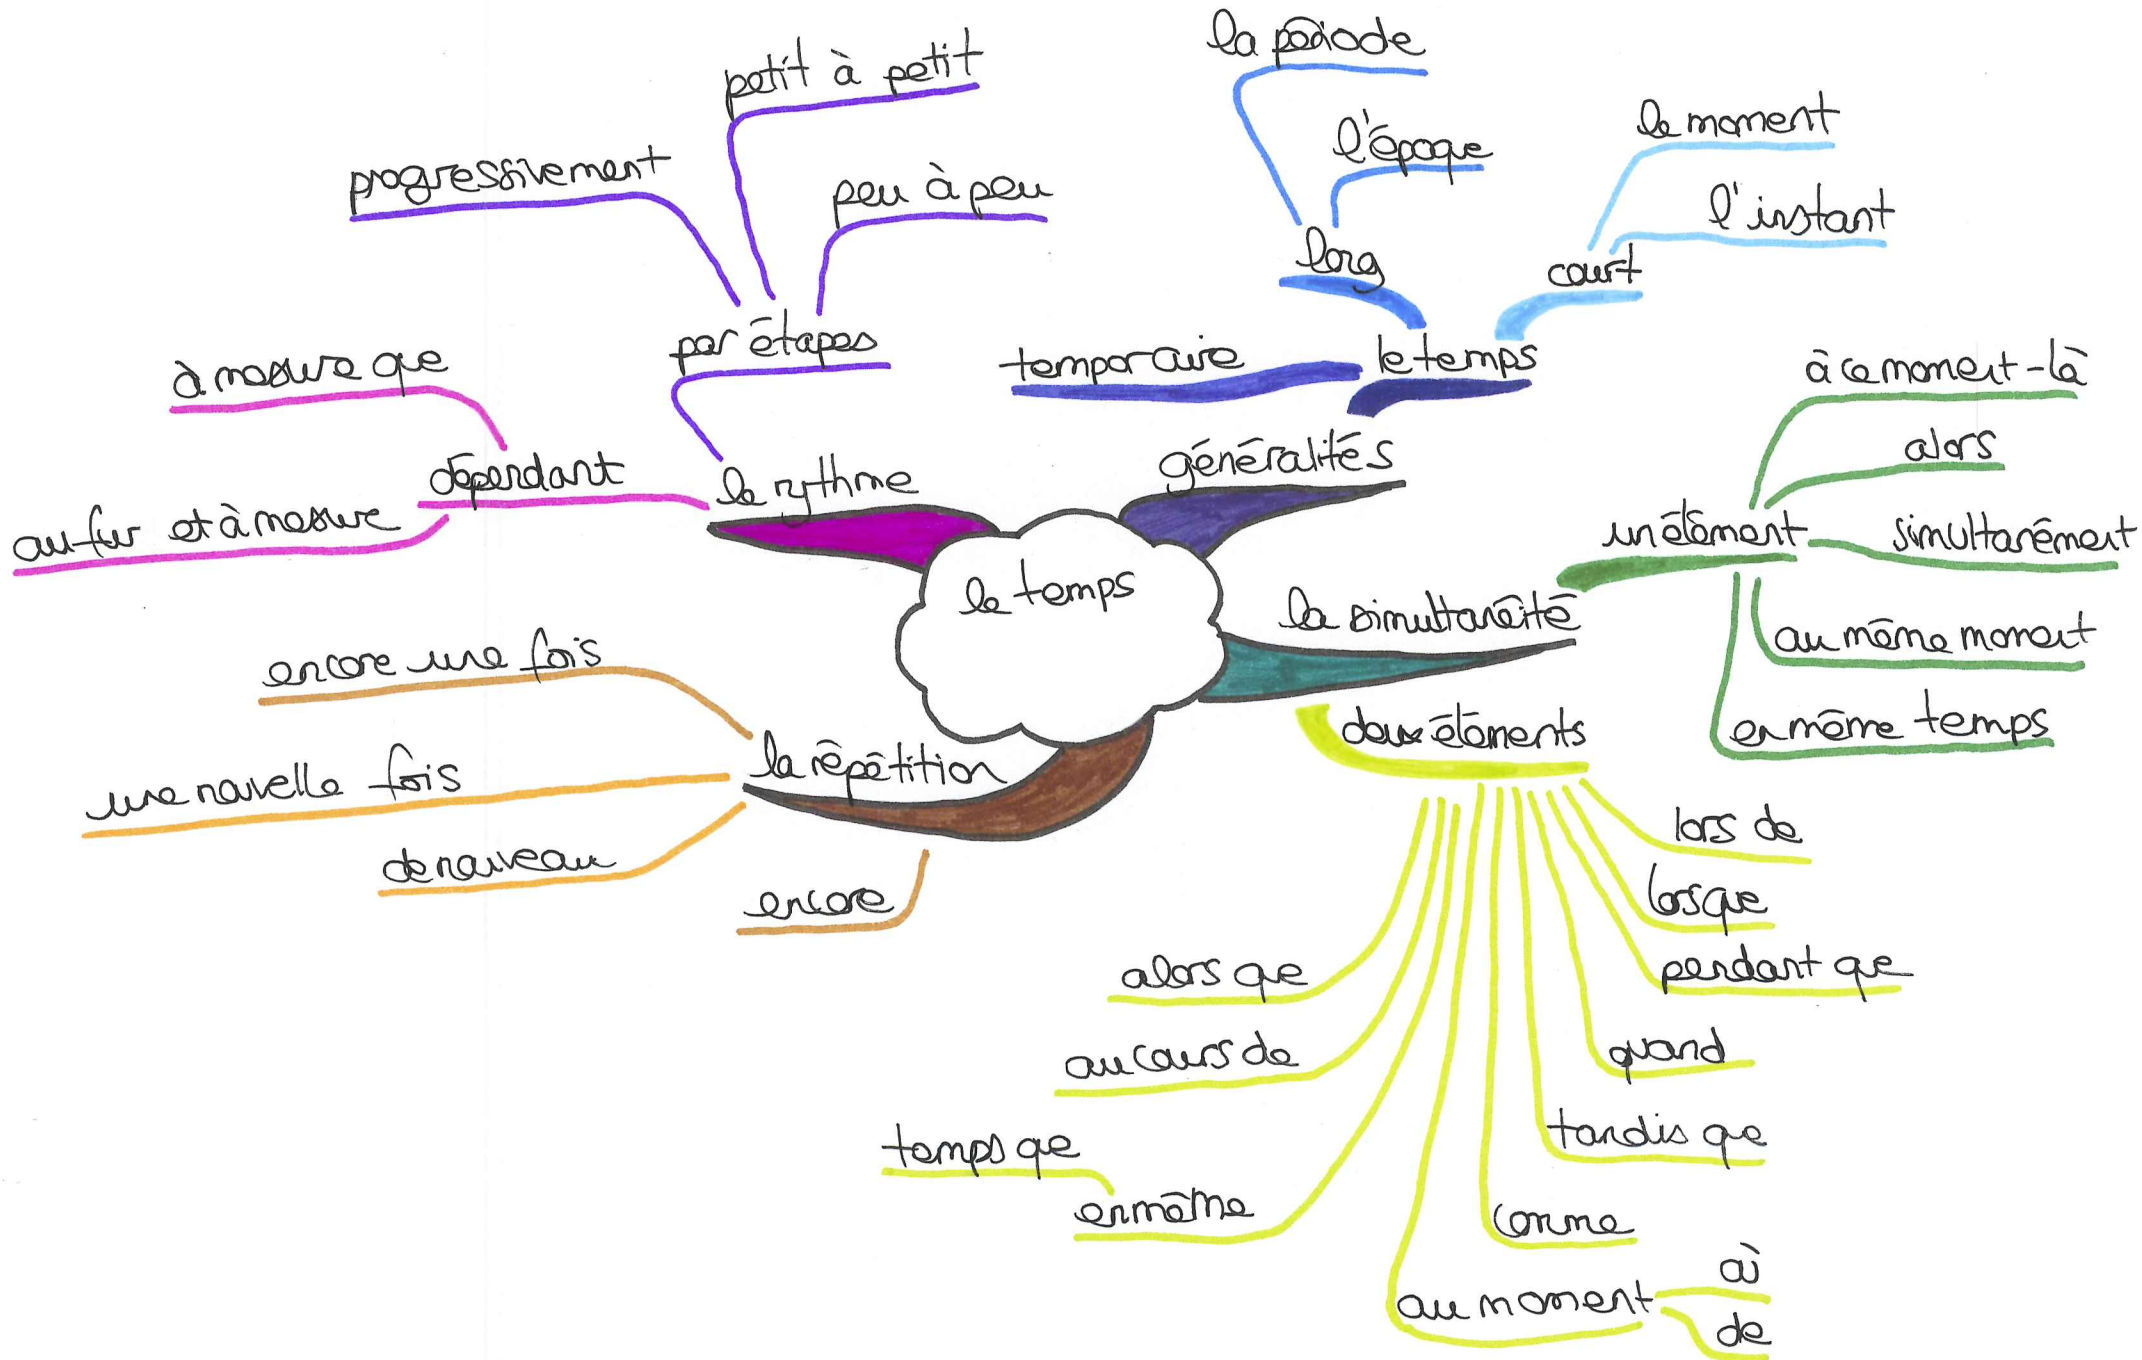 le temps
généralités
le temps
temporaire
long
la période
l'époque
court
le moment
l'instant
la simultanéité
un élément
à ce moment-là
alors
simultanément
au même moment
en même temps
deux éléments
lors de
lorsque
pendant que
quand
tandis que
comme
au moment
où
de
en même
temps que
au cours de
alors que
la répétition
encore une fois
une nouvelle fois
de nouveau
encore
le rythme
dépendant
à mesure que
au fur et à mesure
par étapes
progressivement
petit à petit
peu à peu